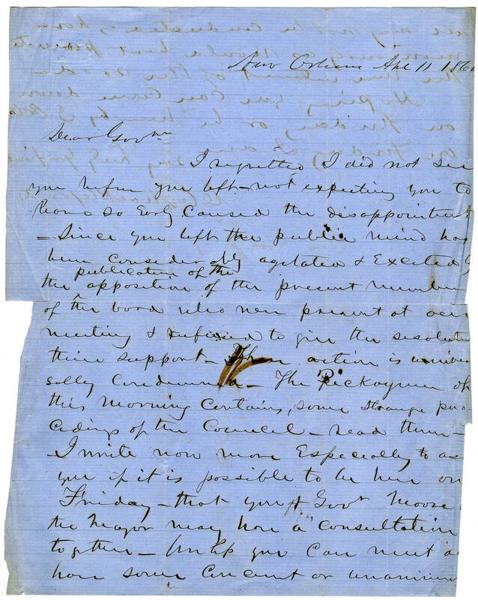 New Orleans Apl 11 186
Dear Govr
I regretted I did not see
you before you left - not expecting you to
leave so Early Caused the disappointment
- Since you left the public mind has
been Considerably agitated & Excited by
publication of the
the opposition of the present members
of the board who were present at our
meeting & refused to give the resolution
their support - Their action is univer
sally Condemned - The Pickayune of
this morning Contains, some strange pro
cedings of the Council - read them -
I write now more Especially to as
you if it is possible to be here on
Friday - that you & Govr Moore
the Mayor may have a "Consultation
together - Unless you Can meet a
have some Concert or unanim